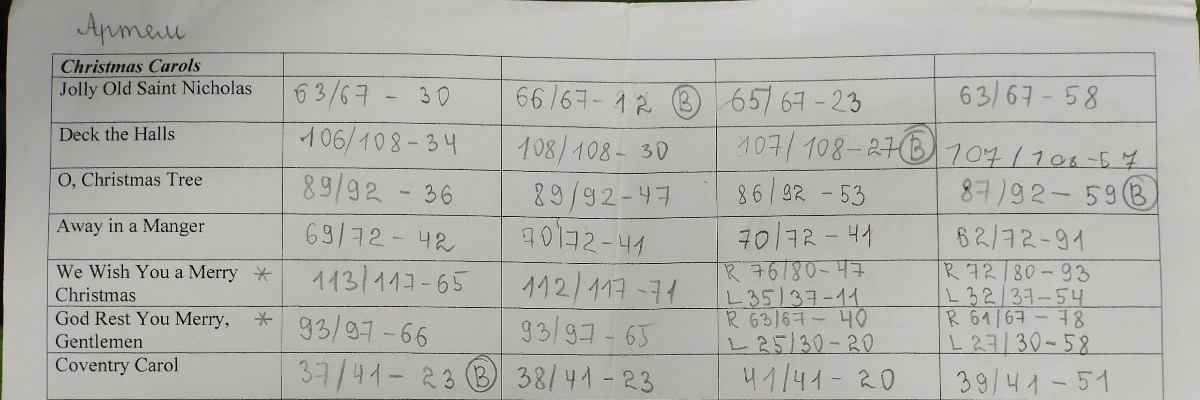 Артем
Christmas Carols
Jolly Old Saint Nicholas 63/67 - 30 66/67 - 12 B 65/67 - 23 63/67 - 58
Deck the Halls 106/108 - 34 108/108 - 30 107/108 - 27 B 107/108 - 67
O, Christmas Tree 89/92 - 36 89/92 - 47 86/92 - 53 87/92 - 59 B
Away in a Manger 69/72 - 42 70/72 - 41 70/72 - 41 62/72 - 91
We Wish You a Merry * 113/117 - 65 112/117 - 71 R 76/80 - 47 R 72/80 - 93
Christmas L 35/37 - 11 L 32/37 - 54
God Rest You Merry, * 93/97 - 66 93/97 - 65 R 63/67 - 40 R 61/67 - 78
Gentlemen L 25/30 - 20 L 27/30 - 58
Coventry Carol 37/41 - 23 B 38/41 - 23 41/41 - 20 39/41 - 51